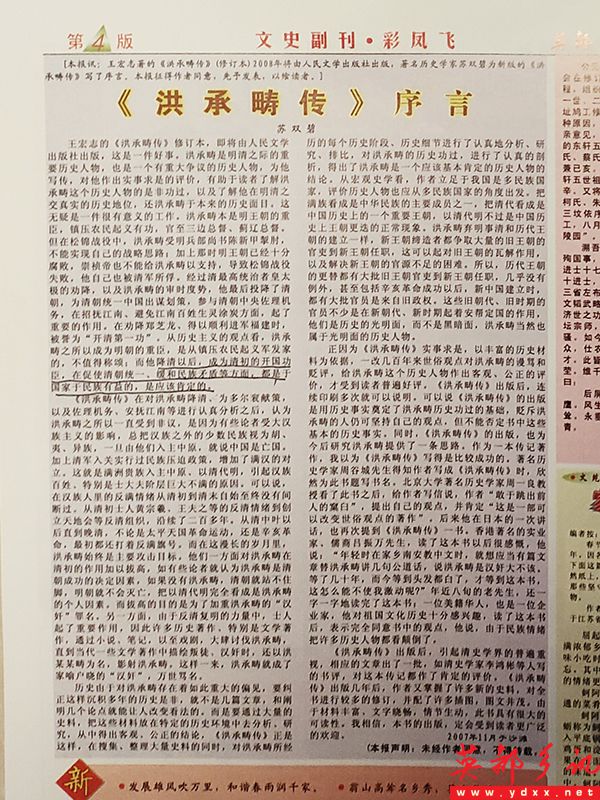 第4版
文史副刊·彩凤飞
[本报讯：王宏志著的《洪承畴传》(修订本)2008年将由人民文学出版社出版，著名历史学家苏双碧为新版的《洪
承畴传》写了序言。本报征得作者同意，先予发表，以飨读者。]
《洪承畴传》序言
苏双碧
王宏志的《洪承畴传》修订本，即将由人民文学
出版社出版，这是一件好事。洪承畴是明清之际的重
要历史人物，也是一个有重大争议的历史人物，为他
写传，对他作出实事求是的评价，有助于读者了解洪
承畴这个历史人物的是非功过，以及了解他在明清之
交真实的历史地位，还洪承畴于本来的历史面目。这
无疑是一件很有意义的工作。洪承畴本是明王朝的重
臣，镇压农民起义有功，官至三边总督、蓟辽总督。
但在松锦战役中，洪承畴受明兵部尚书陈新甲掣肘，
不能实现自己的战略思路；加上那时明王朝已经十分
腐败，崇祯帝也不能给洪承畴以支持，导致松锦战役
失败，他自己也被清军俘。经过清最高统治者皇太
极的功降，以及洪承畴的审时度势，他最后投降了清
朝，为清朝统一中国出谋划策，参与清朝中央佐理机
务，在招抚江南、避免江南百姓生灵涂炭方面，起了
重要的作用。在功降郑芝龙、得以顺利进军福建时，
被誉为“开清第一功”。从历史主义的观点看，洪承
畴之所以成为明朝的重臣，是从镇压农民起义军发家
的，不值得称颂；而他降清以后，成为清初的开国功
臣，在促使清朝统一、缓和民族矛盾等方面，都是于
国家于民族有益的，是应该肯定的。
《洪承畴传》在对洪承畴降清、为多尔衮献策，
以及佐理机务、安抚江南等进行认真分析之后，认为
洪承畴之所以一直受到非议，是因为有些论者受大汉
族主义的影响，总把汉族之外的少数民族视为胡、
夷、异族，一旦由他们入主中原，就说中国是亡国。
加上清军入关实行过民族压迫政策，增加了满汉的对
立。这就是满洲贵族入主中原、以清代明，引起汉族
百姓、特别是士大夫阶层巨大不满的原因。可以说，
在汉族人里的反满情绪从清初到清末自始至终没有间
断过。从清初士人黄宗羲、王夫之等的反清情绪到创
立天地会等反清组织，沿续了二百多年。从清中叶以
后直到晚清，不论是太平天国革命运动，还是辛亥革
命，最初都还打着反满旗号。而在这漫长的岁月里，
洪承畴始终是主要攻击目标，他们一方面对洪承畴在
清初的作用加以拔高，如有些论者就认为洪承畴是清
朝成功的决定因素，如果没有洪承畴，清朝就站不住
脚，明朝就不会灭亡，把以清代明完全看成是洪承畴
的个人因素，而拔高的目的是为了加重洪承畴的“汉
奸”罪名。另一方面，由于反清复明的力量中，士人
起了重要作用，因此许多历史著作、特别是文学著
作，通过小说、笔记，以至戏剧，大肆讨伐洪承畴，
直到当代一些文学著作中描绘叛徒、汉奸时，还以洪
某某畴为名，影射洪承畴，这样一来，洪承畴就成了
家喻户晓的“汉奸”，万世骂名。
历史由于对洪承畴存在着如此重大的偏见，要纠
正这样沉积多年的历史是非，就不是几篇文章，和阐
明几个论点就能让人改变看法的，而是要通过大量的
史料，把这些材料放在特定的历史环境中去分析、研
究，从中得出客观、公正的结论。《洪承畴传》正是
这样，在搜集、整理大量史料的同时，对洪承畴所经
历的每个历史阶段、历史细节进行了认真地分析、研
究、排比，对洪承畴的历史功过，进行了认真的剖
析，得出了洪承畴是一个应该基本肯定的历史人物的
结论。从宏观史学看，作者立足于我国是多民族国
家，评价历史人物也应从多民族国家的角度出发。把
满族看成是中华民族的主要成员之一，把清代看成是
中国历史上的一个重要王朝，以清代明不过是中国历
史上王朝更迭的正常现象。洪承畴弃明事清和历代王
朝的建立一样，新王朝缔造者都争取大量的旧王朝的
官吏到新王朝任职，这可以起对旧王朝的瓦解作用，
以及解决新王朝的官源不足的困难。所以，历代王朝
的更替都有大批旧王朝官吏到新王朝任职，几乎没有
例外，甚至包括辛亥革命成功以后，新中国建立时，
都有大批官员是来自旧政权。这些旧朝代、旧时期的
官员不少是在新朝代、新时期起着安邦定国的作用，
他们是历史的光明面，而不是黑暗面，洪承畴当然也
属于光明面的历史人物。
正因为《洪承畴传》实事求是，以丰富的历史材
料为依据，一改几百年来世俗观点对洪承畴的谩骂和
贬评，给洪承畴这个历史人物作出客观、公正的评
价，才受到读者普遍好评。《洪承畴传》出版后，连
续印刷多次就可以说明，可以说《洪承畴传》的出版
是用历史事实奠定了洪承畴历史功过的基础，贬斥洪
承畴的人仍可坚持自己的观点，但不能否定书中这些
基本的历史事实。同时，《洪承畴传》的出版，也为
今后研究洪承畴提供了一条思路。作为一本传记著
作，我以为《洪承畴传》写得是比较成功的。著名历
史学家周谷城先生得知作者写成《洪承畴传》时，欣
然为此书题写书名。北京大学著名历史学家周一良教
授看了此书之后，给作者写信说，作者“敢于跳出前
人的窠臼”，提出自己的观点，并肯定“这是一部可
以改变世俗观点的著作”。后来他在日本的一次讲
话，也再次提到《洪承畴传》一书。香港著名的实业
家、儒商吕振万先生，读了这本书以后很感慨，他
说：“年轻时在家乡南安教中文时，就想应当有篇文
章替洪承畴讲几句公道话，说洪承畴是汉奸大不该，
等了几十年，而今等到头发都白了，才等到这本书，
这怎么能不使我激动呢？”年近八旬的老先生，还一
字一字地读完了这本书；一位美籍华人，也是一位企
业家，他对祖国文化历史十分感兴趣，读了这本书
后，表示完全同意书中的观点，他说，由于民族情绪
把许多历史人物都看颠倒了。
《洪承畴传》出版后，引起清史学界的普遍重
视，相应的文章出了一批，如清史学家李鸿彬等人写
的书评，对这本传记都作了肯定的评价。《洪承畴
传》出版几年后，作者又掌握了许多新的史料，对全
书进行较多的修订，并配了许多插图，图文并茂，由
于材料丰富，文字晓畅，情节生动，此书具有很大的
可读性。我相信，本书的出版，定会受到读者更广泛
的欢迎。
2007年11月于沙滩
(本报声明：未经作者同意，不得转载。)
新
·发展雄风吹万里，和谐春雨润千家。
·翁山高耸名乡秀，
英都乡讯
www.ydxx.net